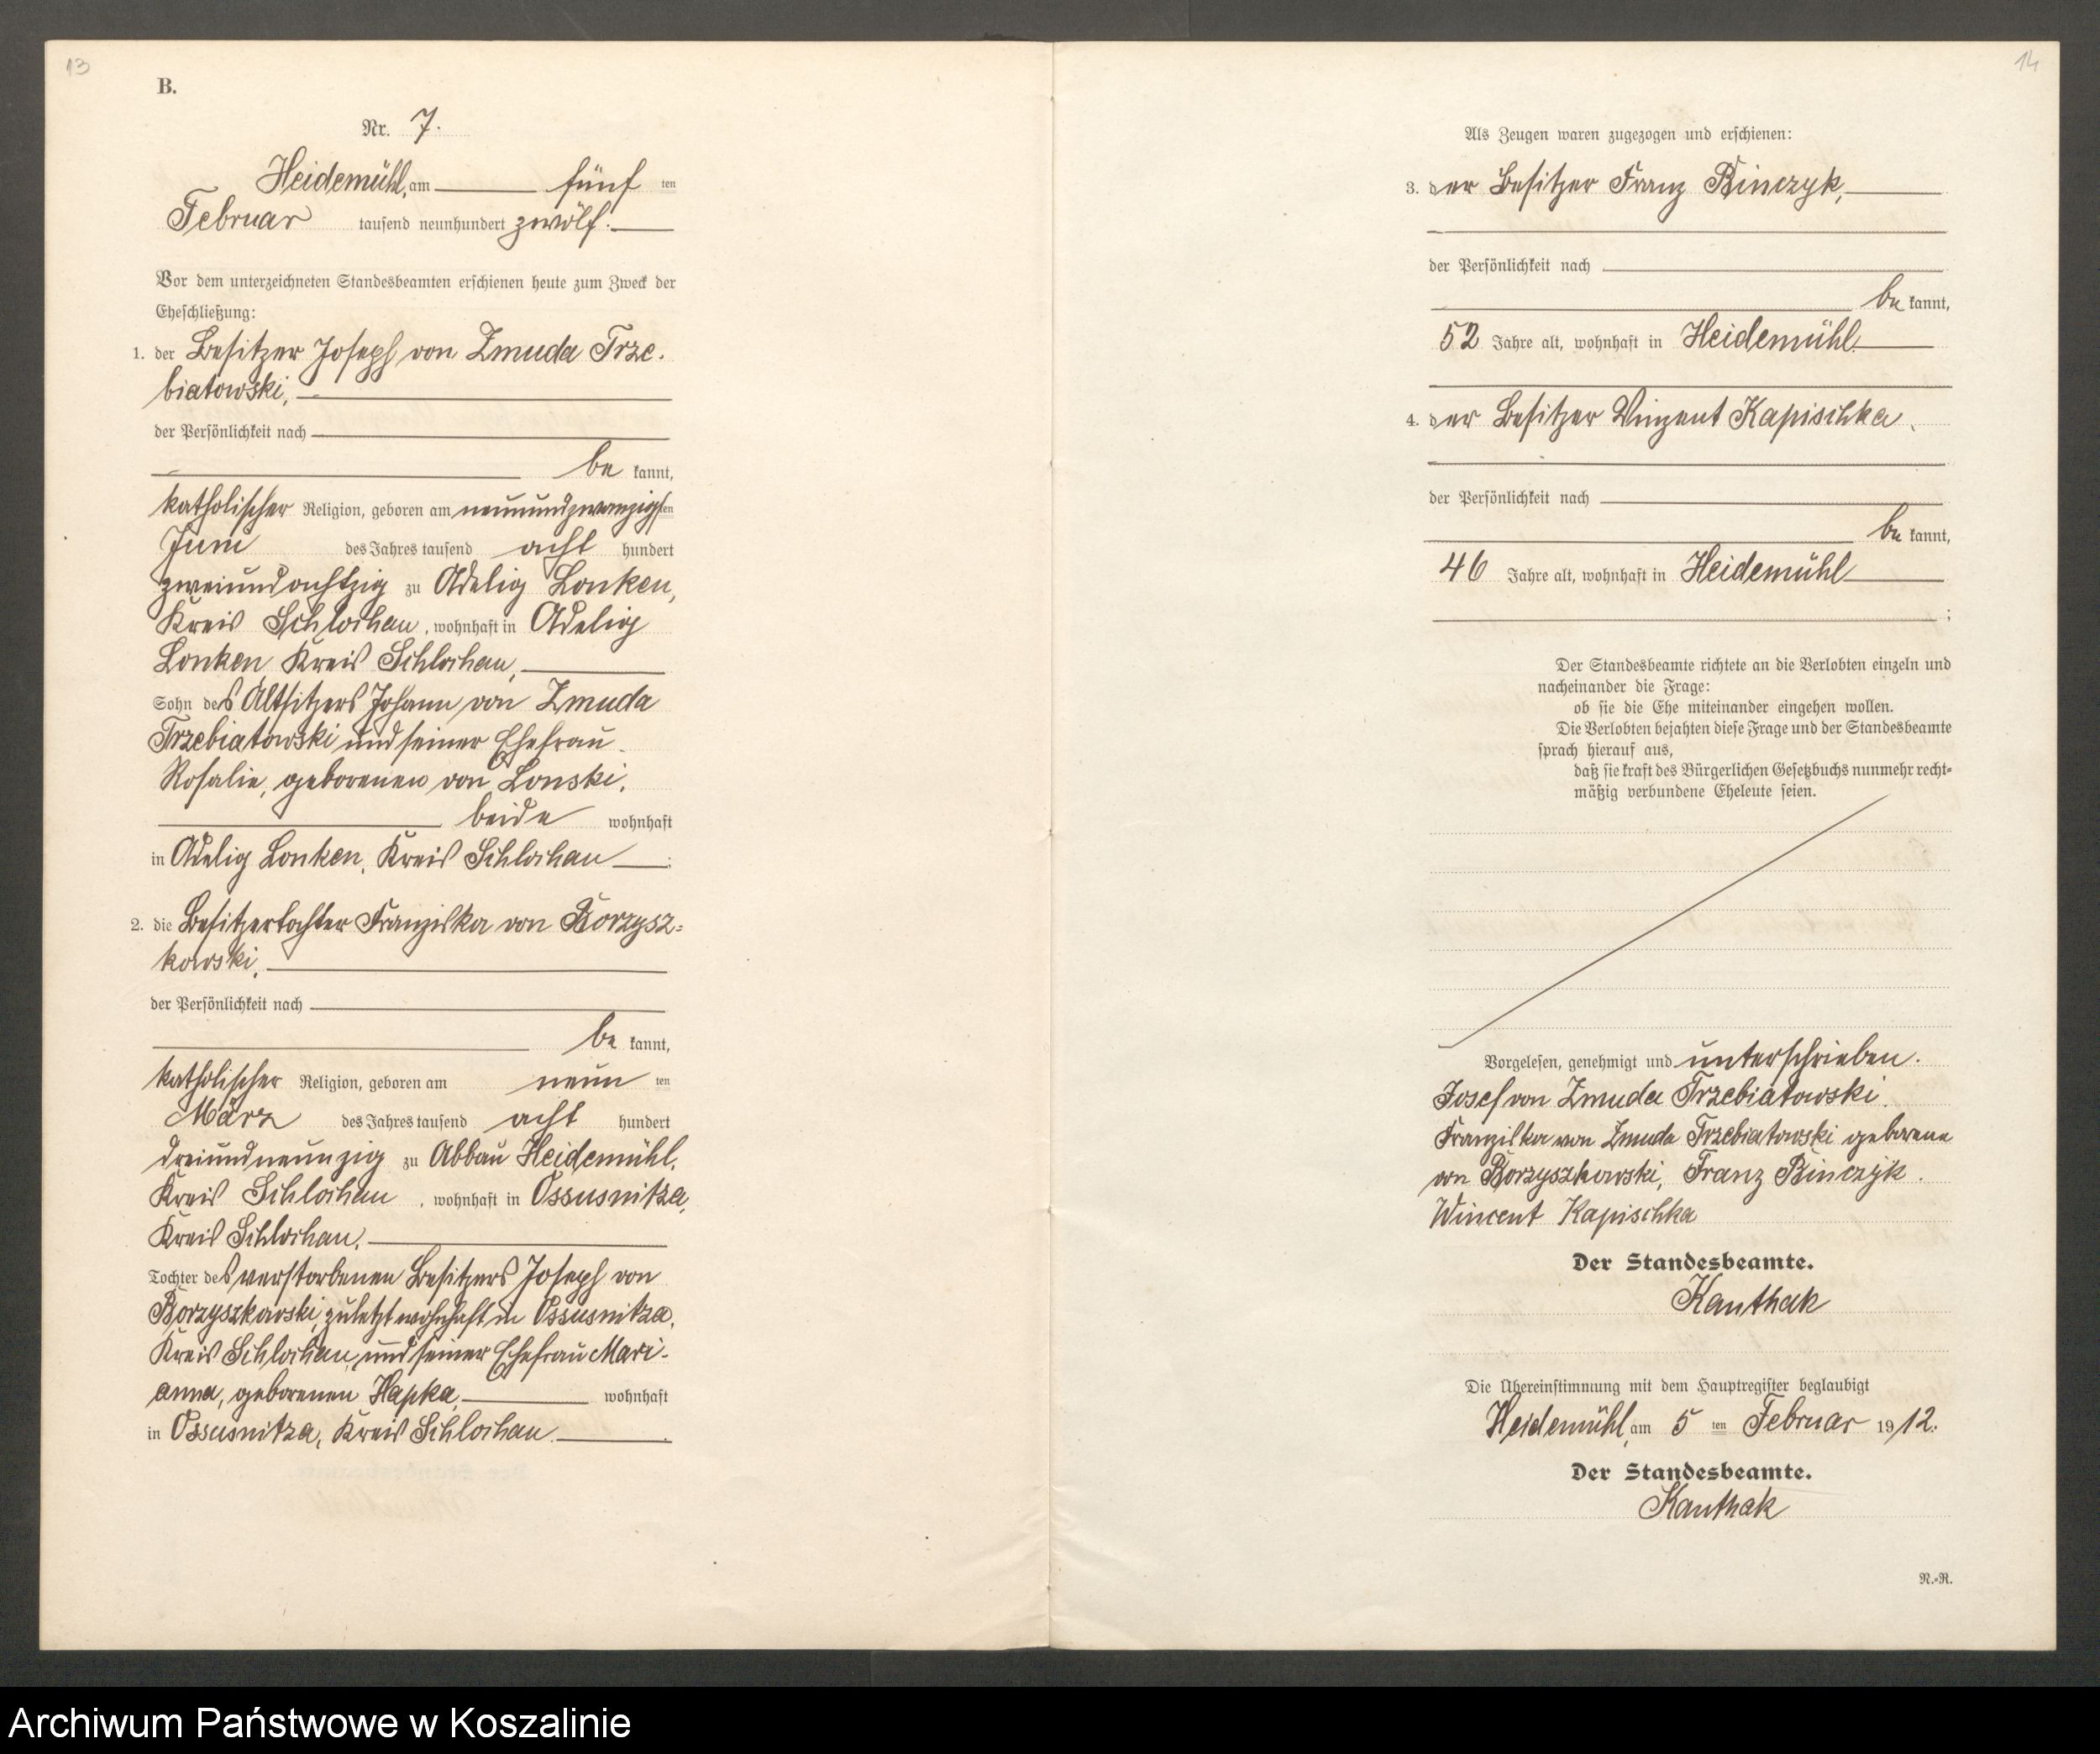 13
B.
Nr. 7.
Heidemühl, am fünf ten
Februar tausend neunhundert zwölf.
Vor dem unterzeichneten Standesbeamten erschienen heute zum Zweck der
Eheschließung:
1. der Besitzer Joseph von Zmuda Trze-
biatowski,
der Persönlichkeit nach
be kannt,
katholischer Religion, geboren am neunundzwanzigsten
Juni des Jahres tausend acht hundert
zweiundachtzig zu Adelig Lonken,
Kreis Schlochau, wohnhaft in Adelig
Lonken Kreis Schlochau,
Sohn des Altsitzers Johann von Zmuda
Trzebiatowski und seiner Ehefrau
Rosalie, geborenen von Lonski,
beide wohnhaft
in Adelig Lonken, Kreis Schlochau;
2. die Besitzertochter Franziska von Borzysz-
kowski,
der Persönlichkeit nach
be kannt,
katholischer Religion, geboren am neun ten
März des Jahres tausend acht hundert
dreiundneunzig zu Abbau Heidemühl,
Kreis Schlochau, wohnhaft in Ossusnitza,
Kreis Schlochau,
Tochter des verstorbenen Besitzers Joseph von
Borzyszkowski, zuletzt wohnhaft in Ossusnitza,
Kreis Schlochau und seiner Ehefrau Mari-
anna, geborenen Hapka, wohnhaft
in Ossusnitza, Kreis Schlochau.
14
Als Zeugen waren zugezogen und erschienen:
3. der Besitzer Franz Binczyk,
der Persönlichkeit nach
be kannt,
52 Jahre alt, wohnhaft in Heidemühl.
4. der Besitzer Vinzent Kapischka,
der Persönlichkeit nach
be kannt,
46 Jahre alt, wohnhaft in Heidemühl
;
Der Standesbeamte richtete an die Verlobten einzeln und
nacheinander die Frage:
ob sie die Ehe miteinander eingehen wollen.
Die Verlobten bejahten diese Frage und der Standesbeamte
sprach hierauf aus,
daß sie kraft des Bürgerlichen Gesetzbuchs nunmehr recht-
mäßig verbundene Eheleute seien.
Vorgelesen, genehmigt und unterschrieben.
Josef von Zmuda Trzebiatowski.
Franziska von Zmuda Trzebiatowski geborene
von Borzyszkowski, Franz Binczyk.
Wincent Kapischka
Der Standesbeamte.
Kanthak
Die Übereinstimmung mit dem Hauptregister beglaubigt
Heidemühl, am 5 ten Februar 1912.
Der Standesbeamte.
Kanthak
N.-R.
Archiwum Państwowe w Koszalinie